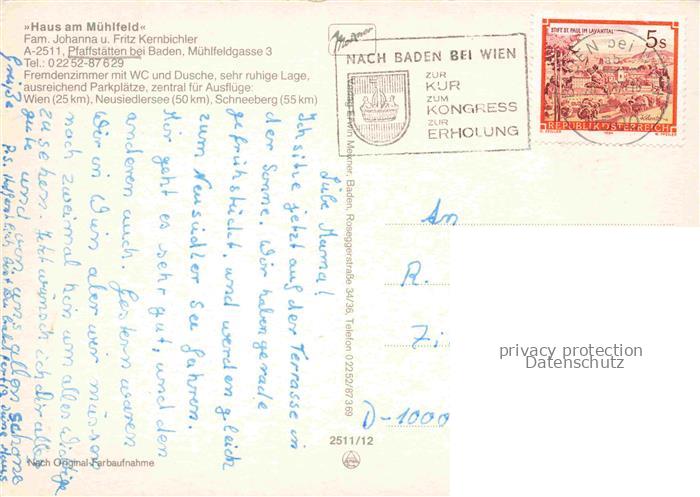 »Haus am Mühlfeld«
Fam. Johanna u. Fritz Kernbichler
A-2511, Pfaffstätten bei Baden, Mühlfeldgasse 3
Tel.: 0 22 52-87 6 29
Fremdenzimmer mit WC und Dusche, sehr ruhige Lage,
ausreichend Parkplätze, zentral für Ausflüge:
Wien (25 km), Neusiedlersee (50 km), Schneeberg (55 km)
Liebe Mama!
Ich sitze jetzt auf der Terrasse in
der Sonne. Wir haben gerade
gefrühstückt, und werden gleich
zum Neusiedler See fahren.
Mir geht es sehr gut, und den
anderen auch. Gestern waren
wir in Wien aber wir müssen
noch zweimal hin um alles Wichtige
zu sehen. Ich wünsch dir alles
gute und von uns allen schöne
Grüße
P.S. Hoffentlich bist Du bald fertig
Nach Original-Farbaufnahme
Verlag Erwin Mexner, Baden, Roseggerstraße 34/36, Telefon 0 22 52/87 3 69
2511/12
Mexner
NACH BADEN BEI WIEN
ZUR
KUR
ZUM
KONGRESS
ZUR
ERHOLUNG
STIFT ST. PAUL IM LAVANTTAL
5 S
REPUBLIK ÖSTERREICH
An
R.
Zi
D-1000
privacy protection
Datenschutz